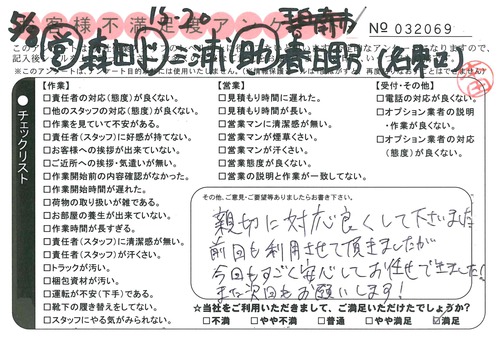 お客様不満足度アンケート
15-20
№ 032069
5/8 営 森田 ㊣ 三浦 助 春日
※このアンケートは、アンケート目的以外には使用いたしません。
チェックリスト
【作業】
□責任者の対応(態度)が良くない。
□他のスタッフの対応(態度)が良くない。
□作業を見ていて不安がある。
□責任者(スタッフ)に好感が持てない。
□お客様への挨拶が出来ていない。
□ご近所への挨拶・気遣いが無い。
□作業開始前の内容確認がなかった。
□作業開始時間が遅れた。
□荷物の取り扱いが雑である。
□お部屋の養生が出来ていない。
□作業時間が長すぎる。
□責任者(スタッフ)に清潔感が無い。
□責任者(スタッフ)が汗くさい。
□トラックが汚い。
□梱包資材が汚い。
□運転が不安(下手)である。
□靴下の履き替えをしてない。
□スタッフにやる気がみられない。
【営業】
□見積もり時間に遅れた。
□見積もり時間が長い。
□営業マンに清潔感が無い。
□営業マンが煙草くさい。
□営業マンが汗くさい。
□営業態度が良くない。
□営業の説明と作業が一致してない。
【受付・その他】
□電話の対応が良くない。
□オプション業者の説明
・作業が良くない。
□オプション業者の対応
(態度)が良くない。
その他、ご意見・ご要望等ありましたらお書き下さい。
親切に対応良くして下さいました
前回も利用させて頂きましたが
今回もすごく安心してお任せできました!
また次回もお願いします!
☆当社をご利用いただきまして、ご満足いただけたでしょうか?
□不満 □やや不満 □普通 □やや満足 ☑満足